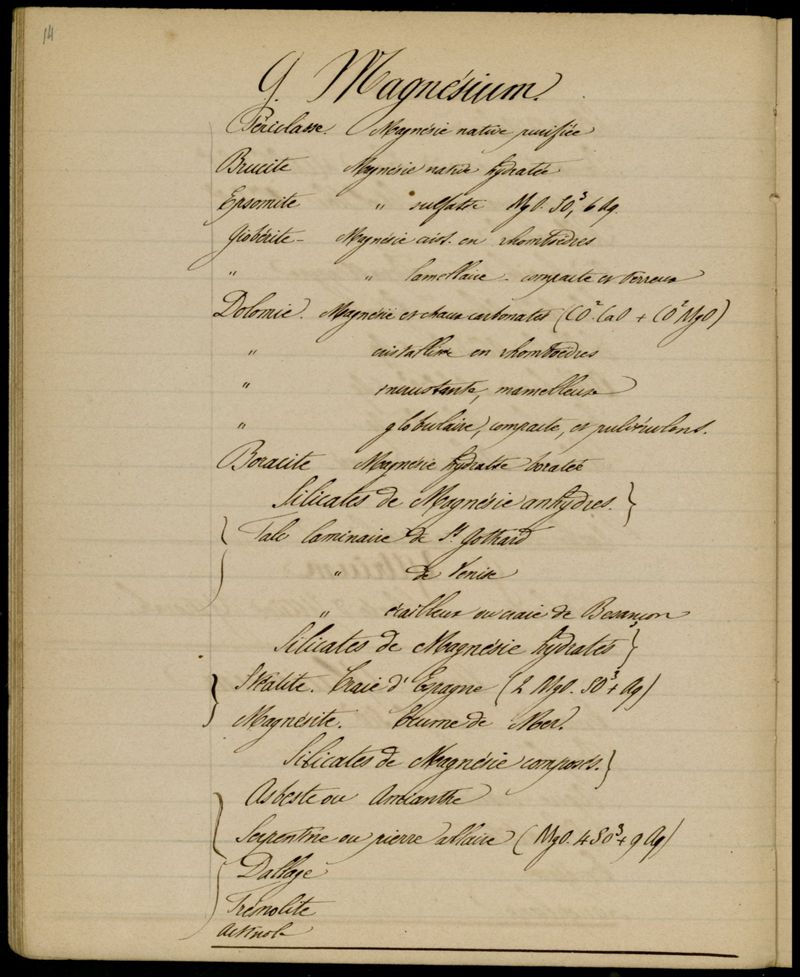 14
9. Magnésium.
Périclasse. Magnésie native purifiée
Brucite Magnésie native hydratée
Epsomite " sulfatée MgO. SO,³ 6 Aq.
Giobérite - Magnésie crist. en rhomboèdres
" " lamellaire - compacte et terreux
Dolomie. Magnésie et chaux carbonates (CO² CaO + CO² MgO)
" cristalline en rhomboèdres
" incrustante, mamelleuse
" globulaire, compacte, et pulvérulens.
Boracite Magnésie hydratée boratée
Silicates de Magnésie anhydres. }
Talc laminaire de St. Gothard
" de Venise
" écailleux ou craie de Besançon
Silicates de Magnésie hydratés }
Stéatite. Craie d'Espagne (2 MgO. SO³ + Aq)
Magnésite. Ecume de Mer.
Silicates de Magnésie composés. }
Asbeste ou Amianthe
Serpentine ou pierre ollaire (MgO. 4 SO³ + 9 Aq)
Diallage
Trémolite
Actinote